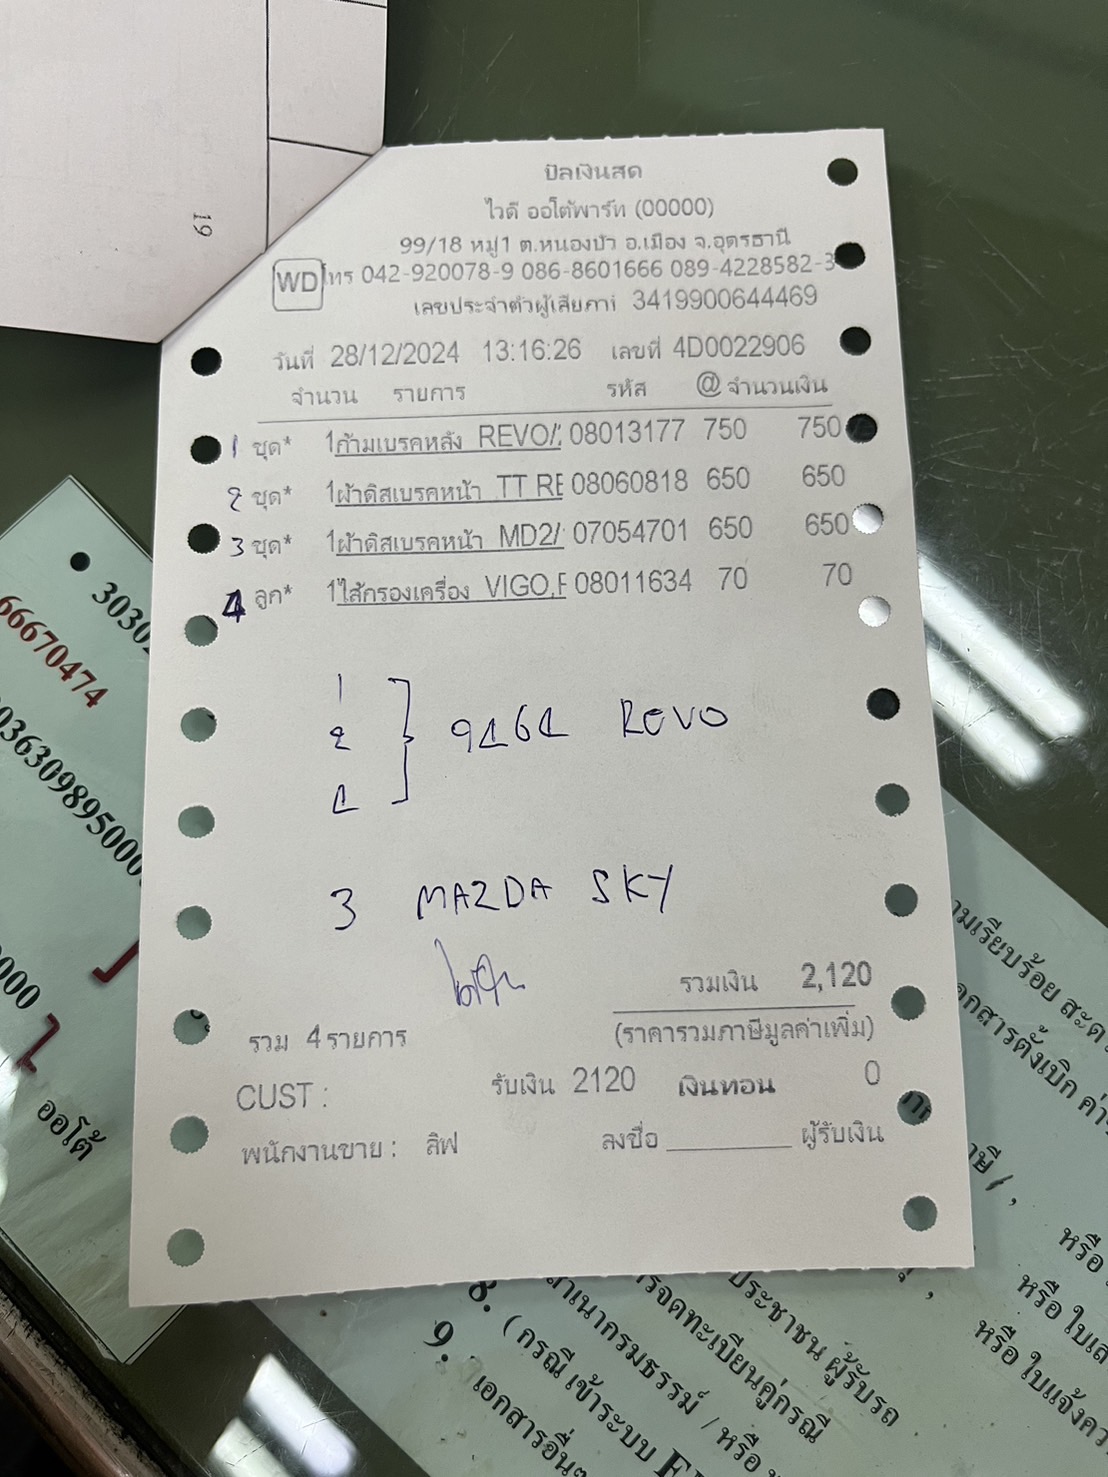 19
บิลเงินสด
ไวดี ออโต้พาร์ท (00000)
99/18 หมู่1 ต.หนองบัว อ.เมือง จ.อุดรธานี
WD โทร 042-920078-9 086-8601666 089-4228582-3
เลขประจำตัวผู้เสียภาษี 3419900644469
วันที่ 28/12/2024 13:16:26 เลขที่ 4D0022906
จำนวน รายการ รหัส @ จำนวนเงิน
1 ชุด* 1ก้ามเบรคหลัง REVO/ 08013177 750 750
2 ชุด* 1ผ้าดิสเบรคหน้า TT RE 08060818 650 650
3 ชุด* 1ผ้าดิสเบรคหน้า MD2/ 07054701 650 650
4 ลูก* 1ไส้กรองเครื่อง VIGO,F 08011634 70 70
1
2
4
REVO
3 MAZDA SKY
รวมเงิน 2,120
(ราคารวมภาษีมูลค่าเพิ่ม)
รวม 4 รายการ
รับเงิน 2120 เงินทอน 0
CUST :
พนักงานขาย : ลิฟ ลงชื่อ ผู้รับเงิน
66670474
03630989500
ออโต้
ประชาชน ผู้รับรถ
ารจดทะเบียนคู่กรณี
8.
9. (กรณี เข้าระบบ
เอกสารอื่นๆ
หรือ
หรือ ใบเส
หรือ ใบแจ้งคว
ามเรียบร้อย สะดว
อกสารตั้งเบิก ค่า